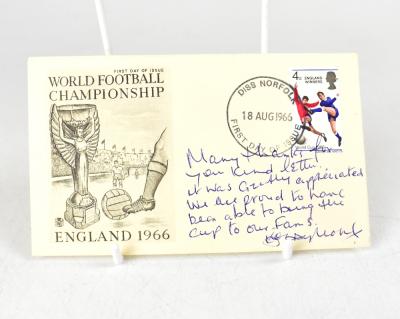 FIRST DAY OF ISSUE
WORLD FOOTBALL
CHAMPIONSHIP
ENGLAND 1966
DISS NORFOLK
18 AUG 1966
FIRST DAY OF ISSUE
4D
ENGLAND
WINNERS
Many thanks for
you kind letter.
it was Greatly appreciated
We are proud to have
been able to bring the
cup to our fans